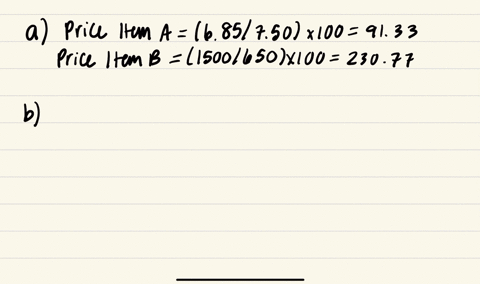 a) Price Item A = (6.85/7.50) x100 = 91.33
Price Item B = (1500/650)x100 = 230.77
b)